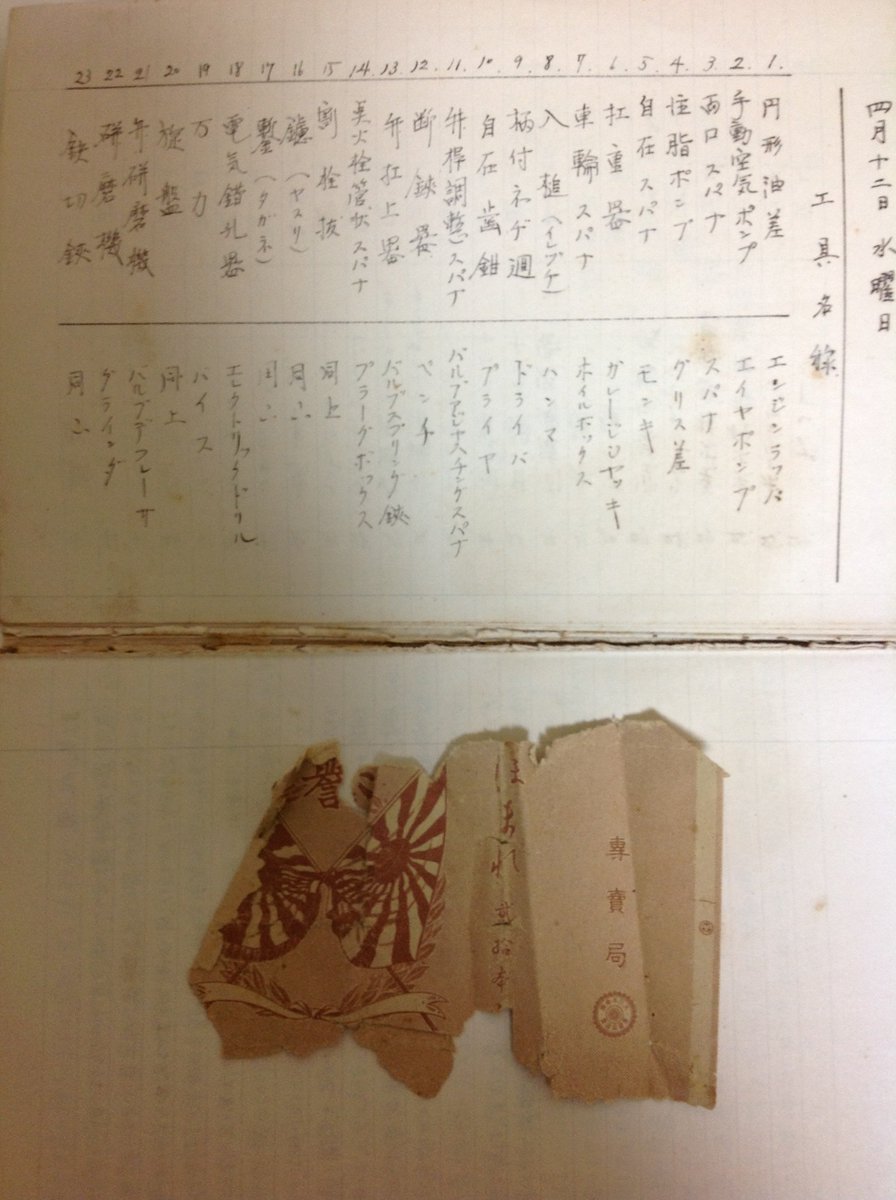 四月十二日 水曜日
工具名称
1. 円形油差 エンジンラッパ
2. 手動空気ポンプ エイヤポンプ
3. 両口スパナ スパナ
4. 注脂ポンプ グリス差
5. 自在スパナ モンキ
6. 扛重器 ガレージジヤッキ
7. 車輪スパナ ホイルボックス
8. 入槌(イレヅケ) ハンマ
9. 柄付ネヂ廻 ドライバ
10. 自在歯鉗 プライヤ
11. 弁桿調整スパナ
12. 断鋏器 ペンチ
13. 弁扛上器 バルブスプリング鋏
14. 点火栓管状スパナ プラーグボックス
15. 割栓抜 同上
16. 鑢(ヤスリ) 同上
17. 鏨(タガネ) 同上
18. 電気錯孔器 エレクトリックドリル
19. 万力 バイス
20. 旋盤 同上
21. 弁研磨機 バルブデフレーサ
22. 研磨機 グラインダ
23. 鉄切鋏 同上
誉
ほまれ 貳拾本
専賣局